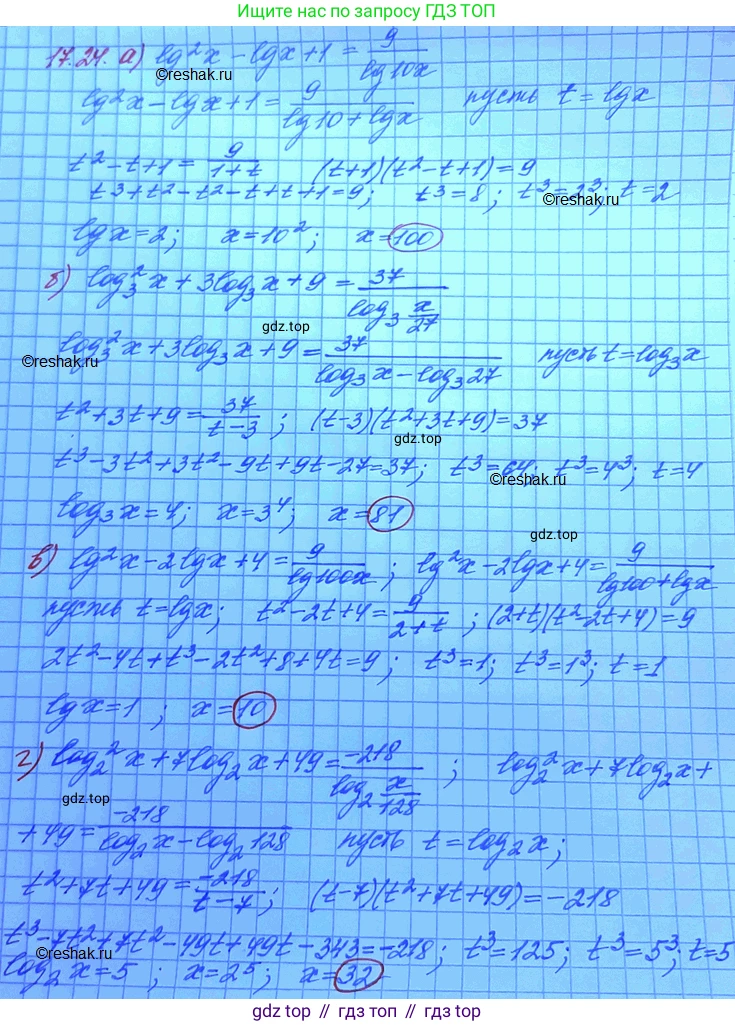 Ищите нас по запросу ГДЗ ТОП
17.24. а) lg²x - lgx + 1 = 9/lg10x
©reshak.ru
lg²x - lgx + 1 = 9/(lg10 + lgx) пусть t = lgx
t² - t + 1 = 9/(1+t) (t+1)(t² - t + 1) = 9
t³ + t² - t² - t + t + 1 = 9; t³ = 8; t³ = 2³; t = 2
©reshak.ru
lgx = 2; x = 10²; x = 100
б) log₃²x + 3log₃x + 9 = 37/log₃(x/27)
gdz.top
log₃²x + 3log₃x + 9 = 37/(log₃x - log₃27) пусть t = log₃x
©reshak.ru
t² + 3t + 9 = 37/(t-3); (t-3)(t² + 3t + 9) = 37
gdz.top
t³ - 3t² + 3t² - 9t + 9t - 27 = 37; t³ = 64; t³ = 4³; t = 4
©reshak.ru
log₃x = 4; x = 3⁴; x = 81
gdz.top
в) lg²x - 2lgx + 4 = 9/lg100x; lg²x - 2lgx + 4 = 9/(lg100 + lgx)
©reshak.ru
пусть t = lgx; t² - 2t + 4 = 9/(2+t); (2+t)(t² - 2t + 4) = 9
2t² - 4t + t³ - 2t² + 8 + 4t = 9; t³ = 1; t³ = 1³; t = 1
lgx = 1; x = 10
г) log₂²x + 7log₂x + 49 = -218/log₂(x/128); log₂²x + 7log₂x +
gdz.top
+ 49 = -218/(log₂x - log₂128) пусть t = log₂x;
t² + 7t + 49 = -218/(t-7); (t-7)(t² + 7t + 49) = -218
t³ - 7t² + 7t² - 49t + 49t - 343 = -218; t³ = 125; t³ = 5³; t = 5
©reshak.ru
log₂x = 5; x = 2⁵; x = 32
gdz.top // гдз топ // gdz.top